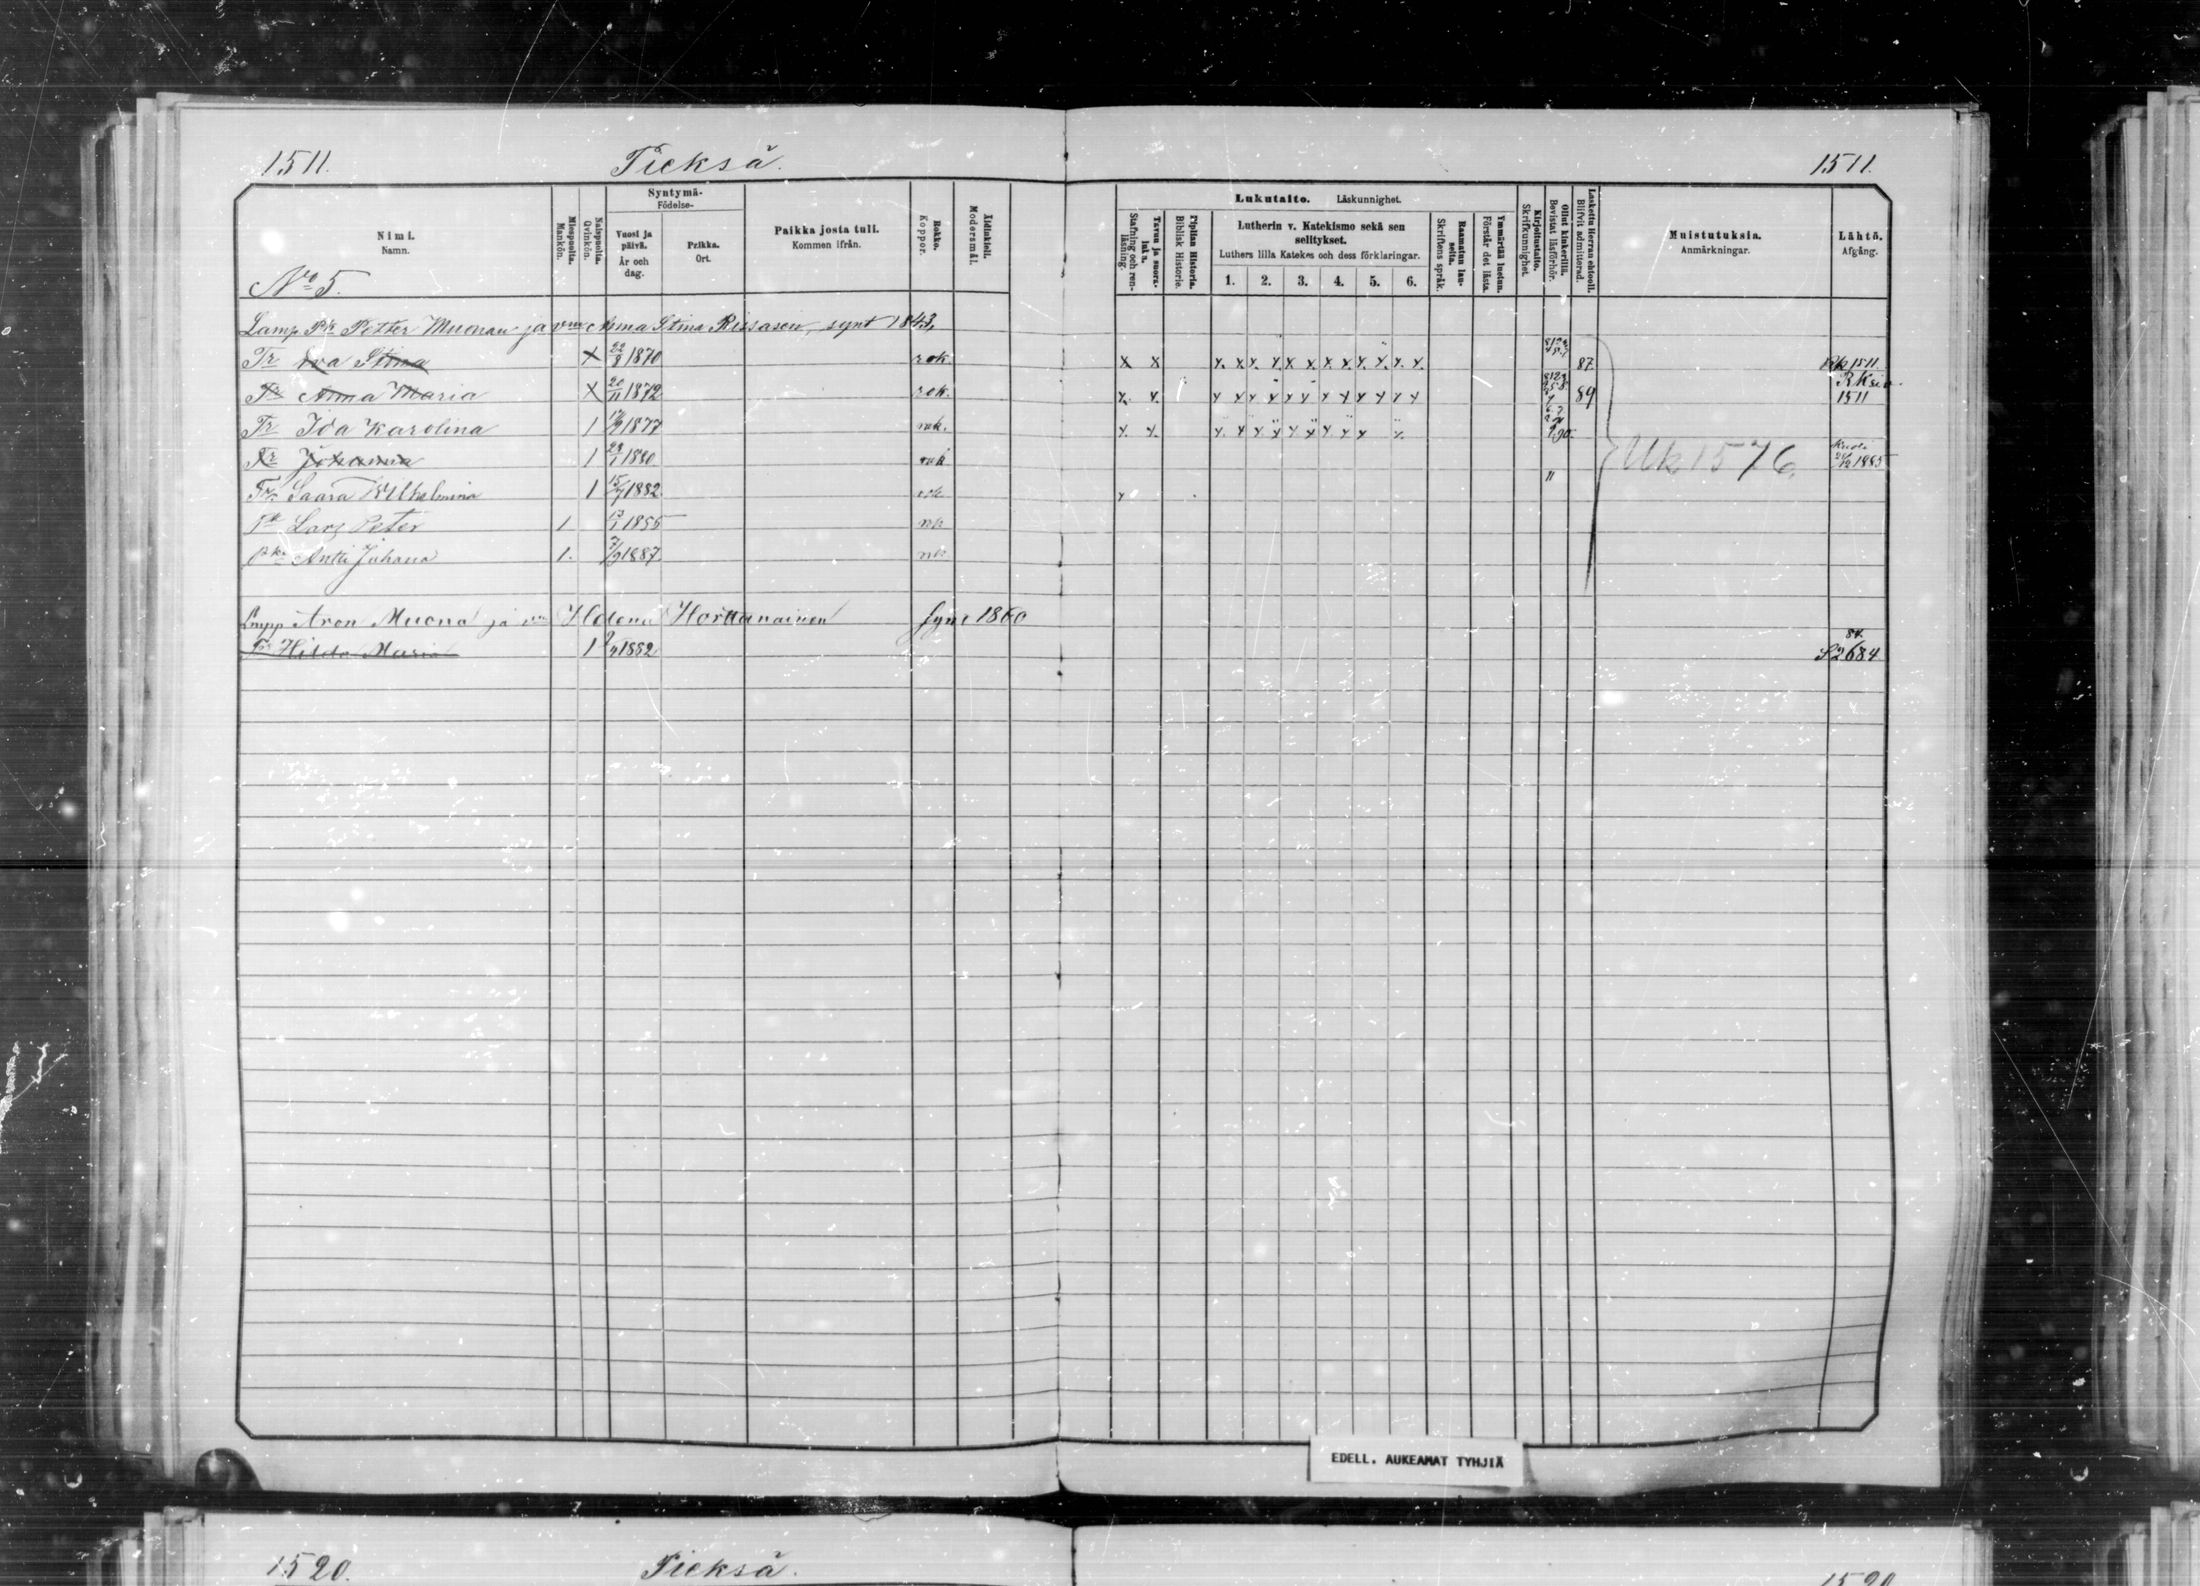 1511. Pieksä. 1511.
Nimi. Namn.
Miespuolia. Mankön.
Naispuolia. Qvinkön.
Syntymä- Födelse-
Vuosi ja päivä. År och dag.
Paikka. Ort.
Paikka josta tuli. Kommen ifrån.
Rokko. Koppor.
Äidinkieli. Modersmål.
Lukutaito. Läskunnighet.
Tavuu ja suora luku. Stafning och renläsning.
Piplian Historia. Biblisk Historie.
Lutherin v. Katekismo sekä sen selitykset.
Luthers lilla Katekes och dess förklaringar.
1. 2. 3. 4. 5. 6.
Raamatun lauseita. Skriftens språk.
Ymmärtää luetun. Förstår det lästa.
Kirjoitustaito. Skrifkunnighet.
Ollut kinkerillä. Bevistat läsförhör.
Laskettu Herran ehtool. Blifvit admitterad.
Muistutuksia. Anmärkningar.
Lähtö. Afgång.
No 5.
Lamp. Pk Petter Muonan ja vm Anna Stina Rissasen, synt 1843.
Tr Eva Stina X 22/8 1870 rok. x x x x x x x x x x x x x x 87. Rk 1511.
Tr Anna Maria X 20/11 1872 rok. x x x x x x x x x x x x x x 89 RKsiv. 1511
Tr Ida Karolina 1 1877 rok. x x x x x x x x x x x x 90
Tr Johanna 1 23/1 1880 rok Kuoli 1885
Tr Saara Wilhelmina 1 15/7 1882 rok x "
Uk 1576,
Pk Lars Peter 1 13/1 1885 rok
Pk Antti Juhana 1. 7/9 1887 rok
Lampp Aron Muona ja vm Helena Horttanainen synt 1860
Tr Hilda Maria 1 1882 84. S 2684
EDELL. AUKEAMAT TYHJIÄ
1520. Pieksä. 1520